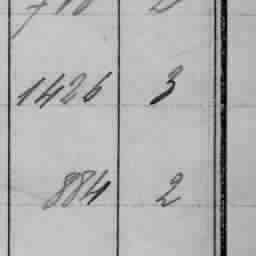 1426 3
884 2